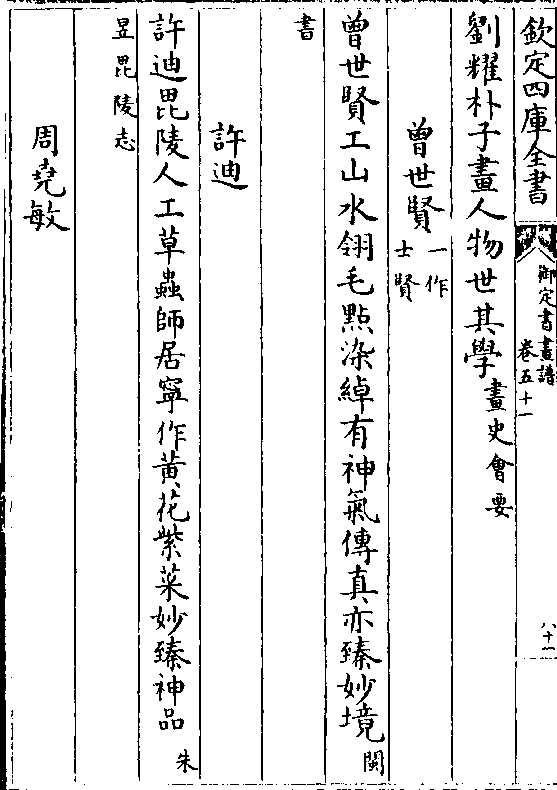 欽定四庫全書
御定書畫譜
卷五十一
八十一
劉耀朴子畫人物世其學畫史會要
曾世賢一作士賢
曾世賢工山水翎毛點染綽有神氣傳真亦臻妙境閩
書
許迪
許迪毘陵人工草蟲師居寧作黃花紫菜妙臻神品朱
昱毘陵志
周堯敏